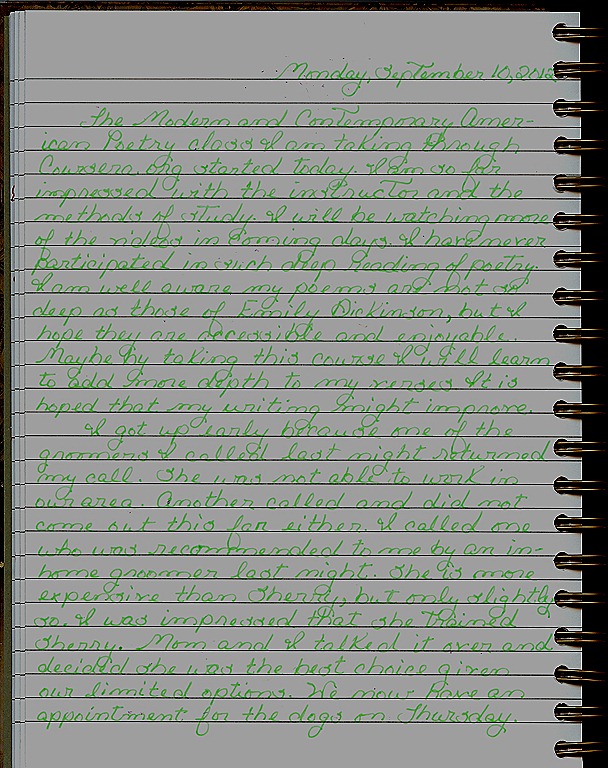 Monday, September 10, 2012
The Modern and Contemporary Amer-
ican Poetry class I am taking through
Coursera.org started today. I am so far
impressed with the instructor and the
methods of study. I will be watching more
of the videos in coming days. I have never
participated in such deep reading of poetry.
I am well aware my poems are not so
deep as those of Emily Dickinson, but I
hope they are accessible and enjoyable.
Maybe by taking this course I will learn
to add more depth to my verses. It is
hoped that my writing might improve.
I got up early because one of the
groomers I called last night returned
my call. She was not able to work in
our area. Another called and did not
come out this far either. I called one
who was recommended to me by an in-
home groomer last night. She is more
expensive than Sherry, but only slightly
so. I was impressed that she trained
Sherry. Mom and I talked it over and
decided she was the best choice given
our limited options. We now have an
appointment for the dogs on Thursday.